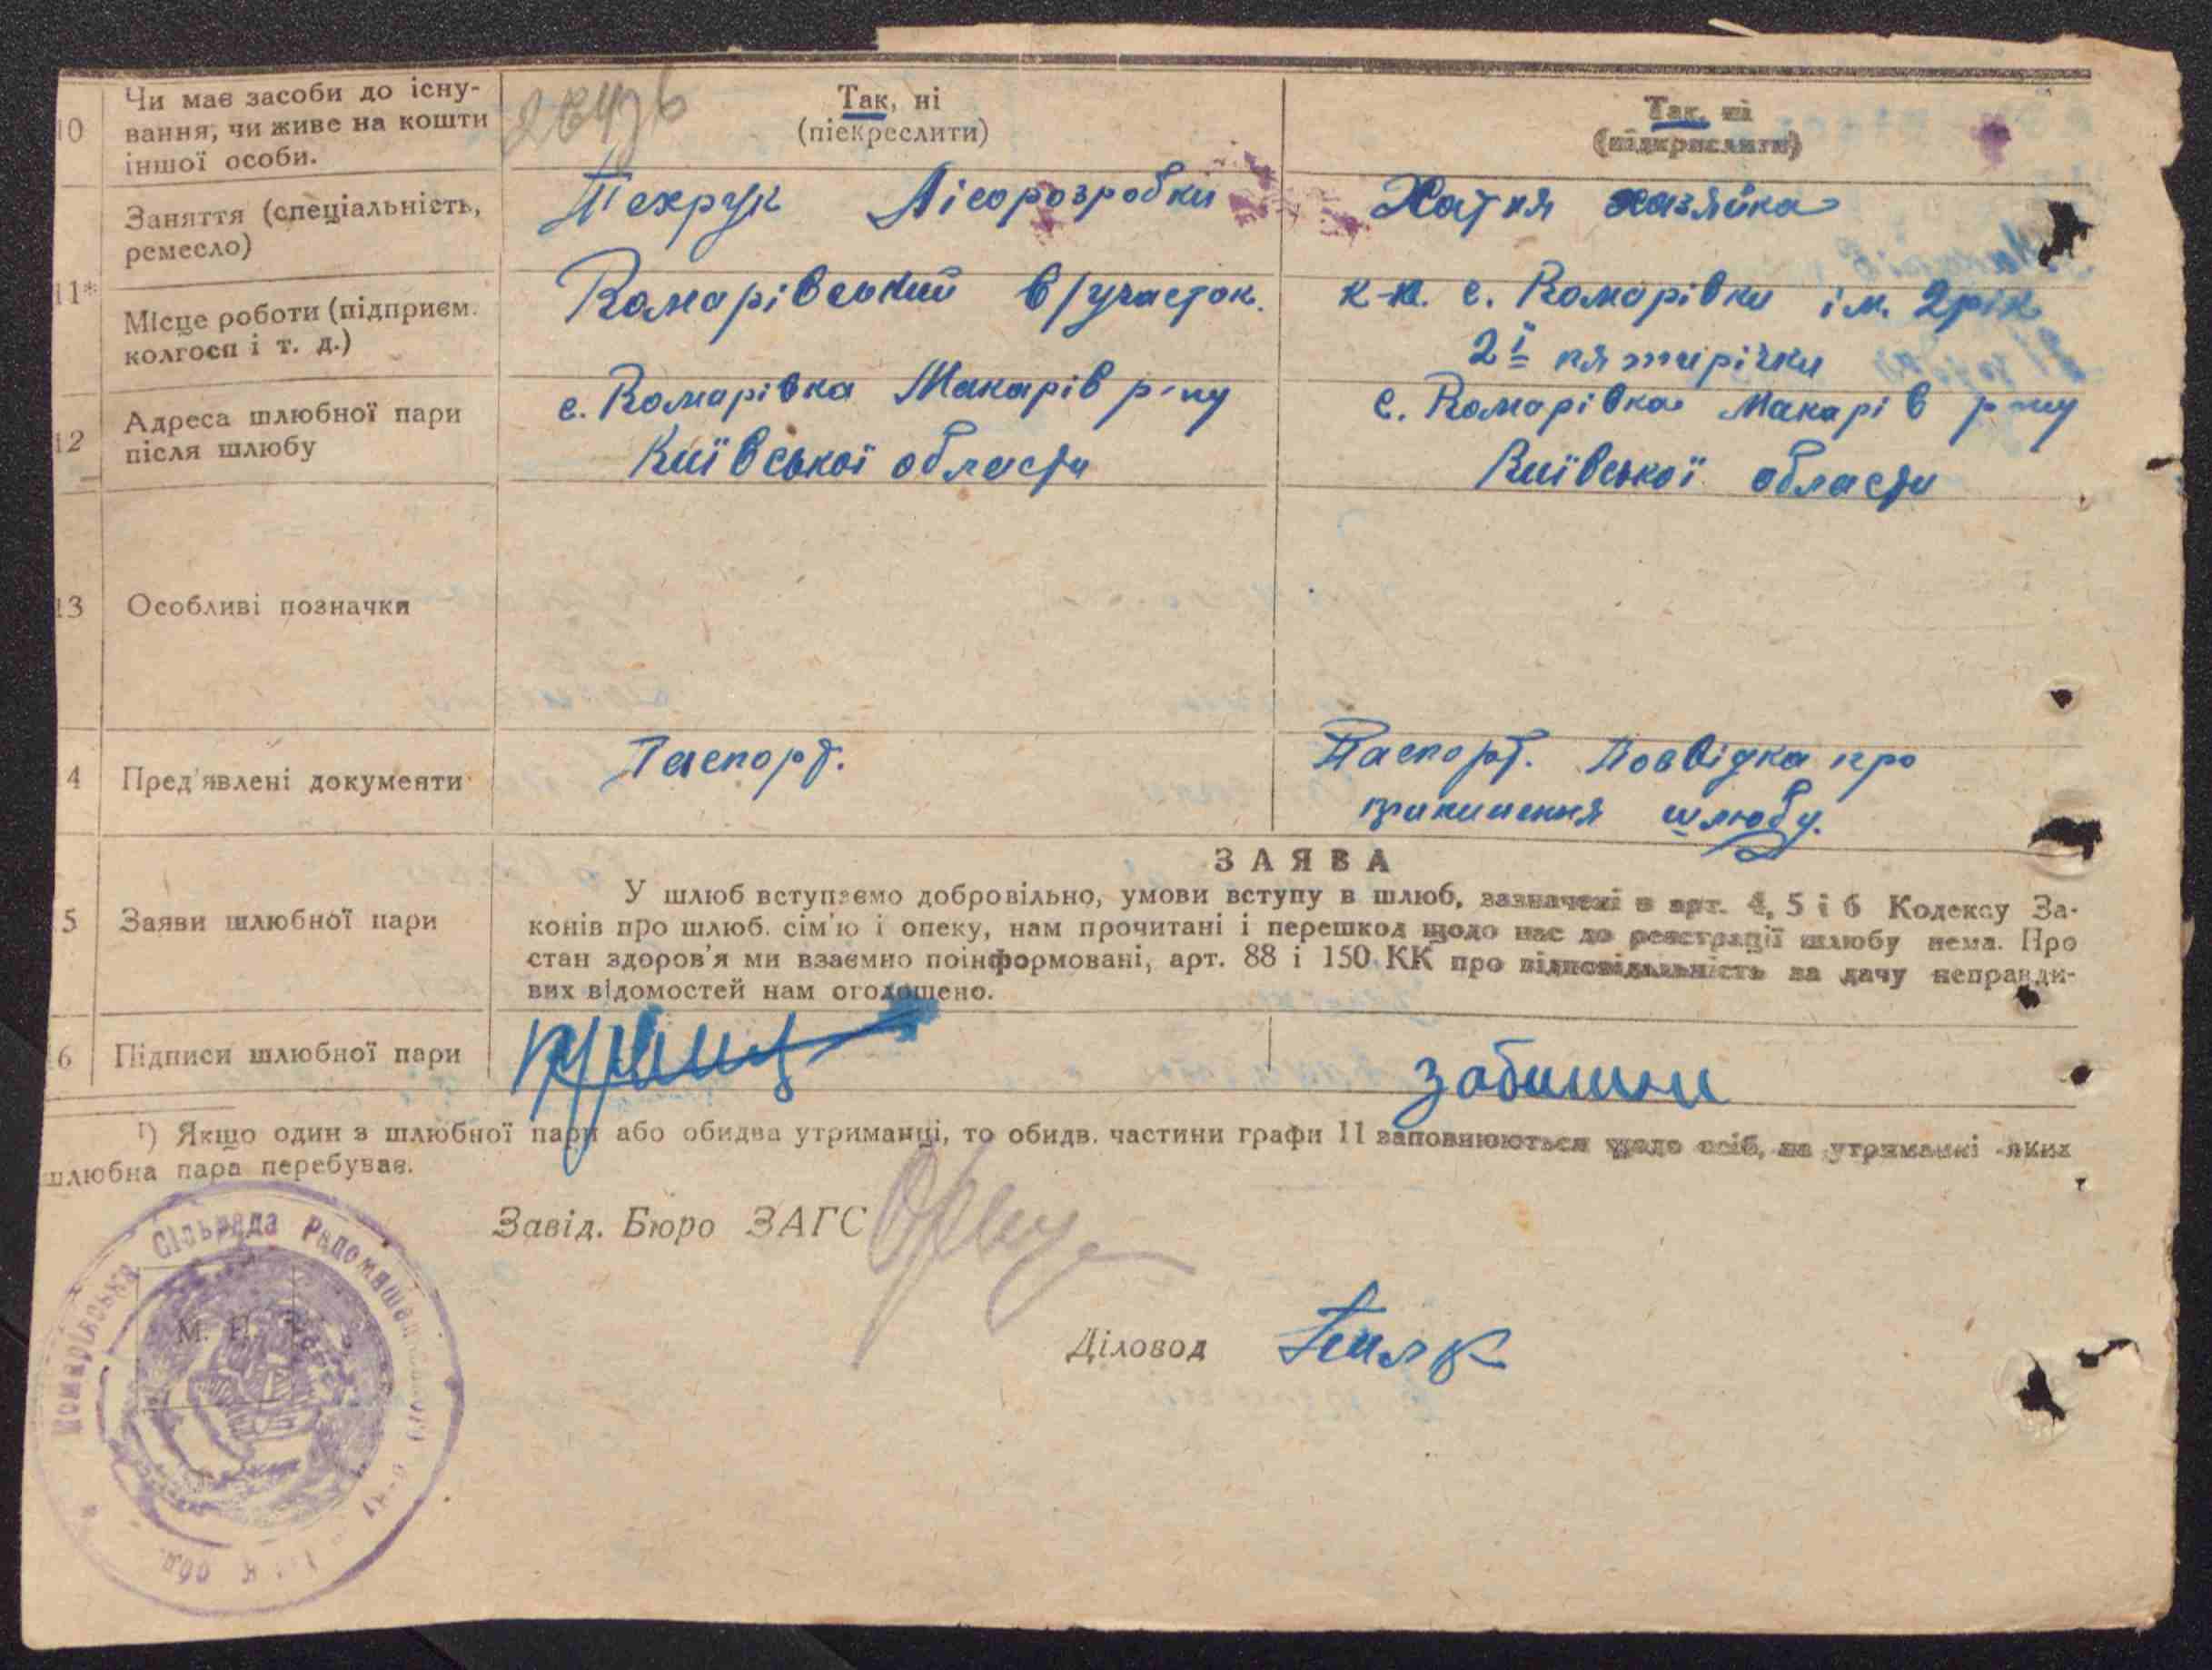 10
Чи має засоби до існу-
вання, чи живе на кошти
іншої особи.
Так, ні
(піекреслити)
Так, ні
(підкреслити)
Заняття (спеціальність,
ремесло)
Техрук Лісорозробки
Хатня хазяйка
11*
Місце роботи (підприєм.
колгосп і т. д.)
Комарівський в/участок.
к-п. с. Комарівки ім. 2 рік
2ї пятирічки
12
Адреса шлюбної пари
після шлюбу
с. Комарівка Макарів р-ну
Київської области
с. Комарівка Макарів р-ну
Київської области
13
Особливі позначки
4
Пред'явлені документи
Паспорт.
Паспорт. Доввідка про
припинення шлюбу.
5
Заяви шлюбної пари
ЗАЯВА
У шлюб вступаємо добровільно, умови вступу в шлюб, зазначені в арт. 4, 5 і 6 Кодексу За-
конів про шлюб. сім'ю і опеку, нам прочитані і перешкод щодо нас до реєстрації шлюбу нема. Про
стан здоров'я ми взаємно поінформовані, арт. 88 і 150 КК про відповідальність за дачу неправди-
вих відомостей нам оголошено.
6
Підписи шлюбної пари
¹) Якщо один з шлюбної пари або обидва утриманці, то обидв. частини графи 11 заповнюються щодо осіб, на утриманні яких
шлюбна пара перебуває.
Завід. Бюро ЗАГС
Діловод
М. П.
Комарівська сільрада Радомишльського
обл.